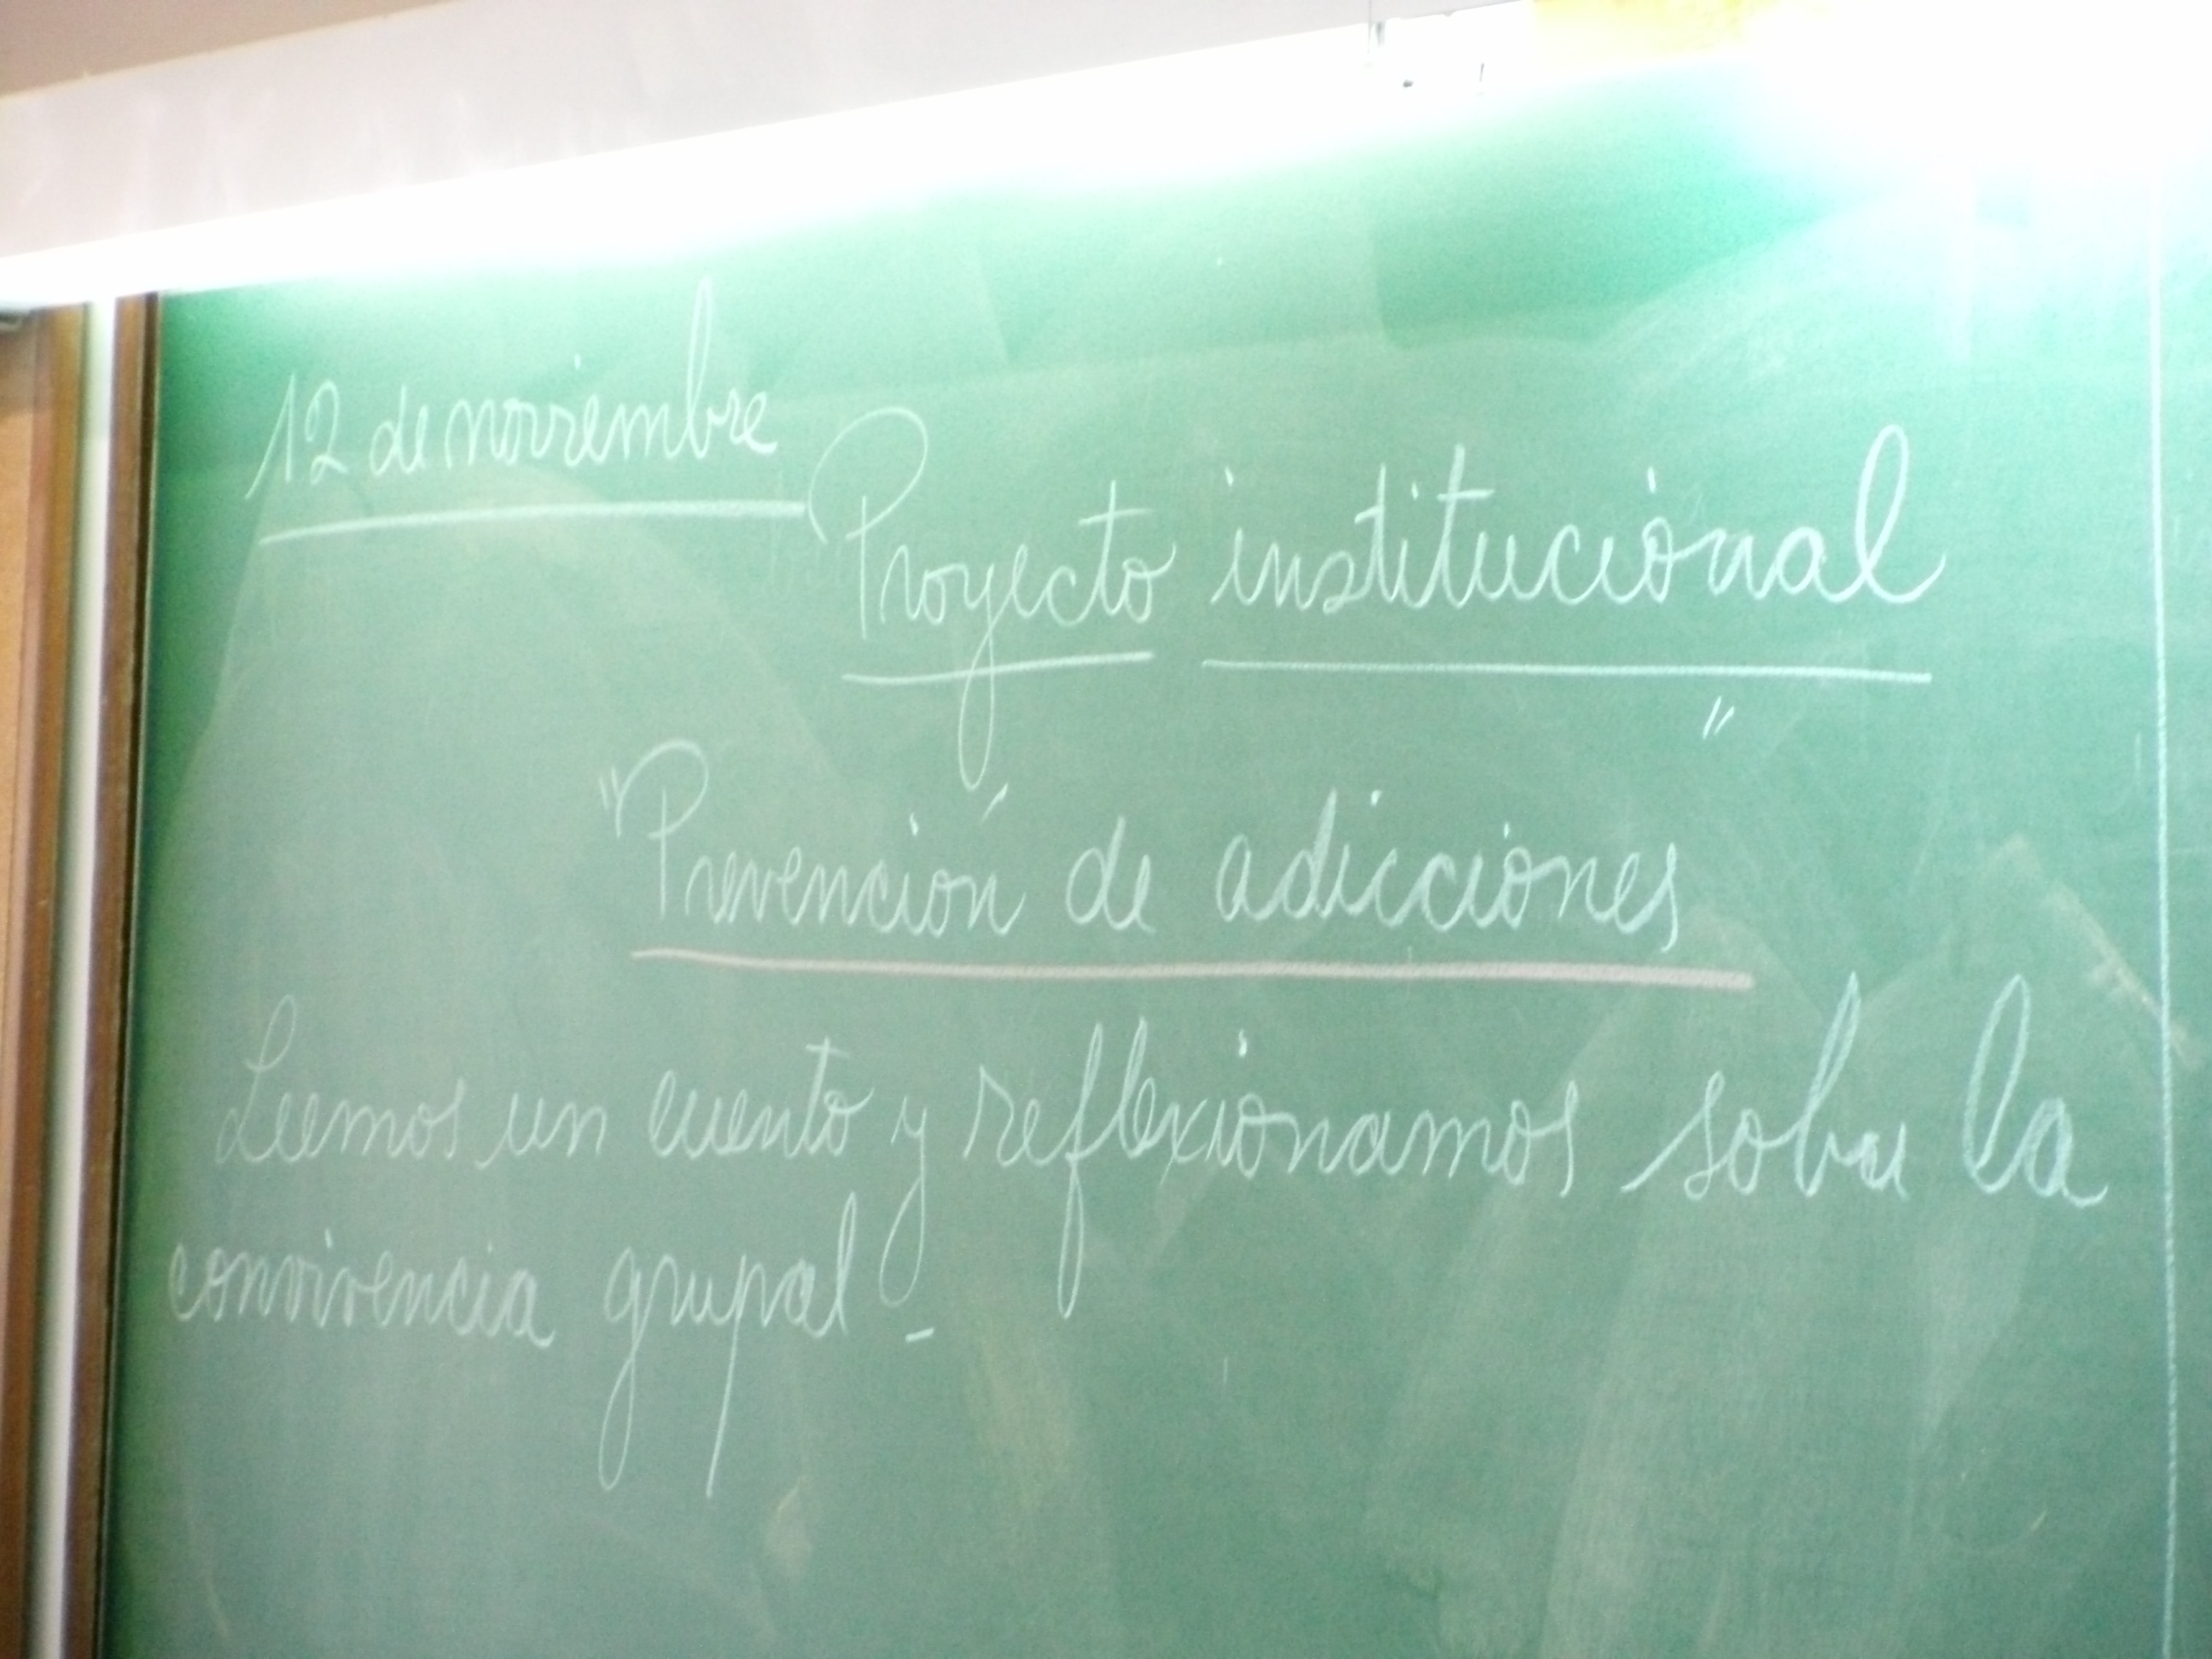 12 de noviembre
Proyecto institucional
"Prevención de adicciones"
Leemos un cuento y reflexionamos sobre la
convivencia grupal -